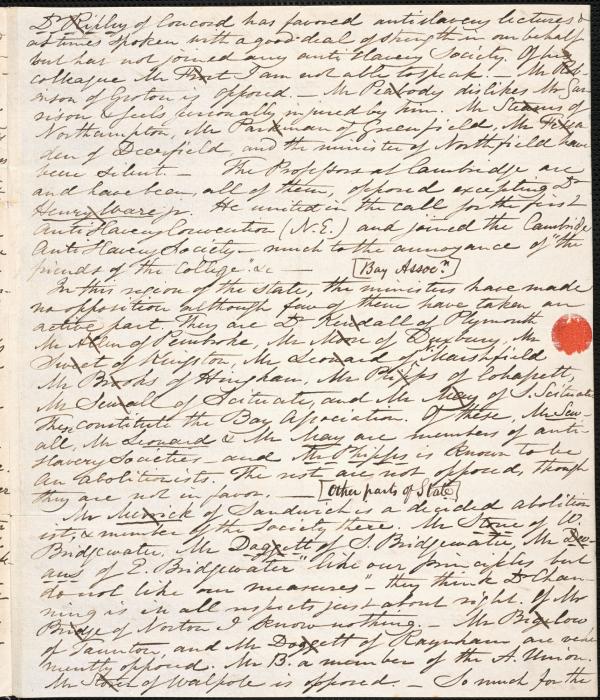 Dr. Ripley of Concord has favored antislavery lectures &
at times spoken with a good deal of strength in our behalf
but has not joined any anti Slavery Society. Of his
colleague Mr Frost I am not able to speak. — Mr Rob-
inson of Groton is opposed. — Mr Peabody dislikes Mr Gar-
rison & feels personally injured by him. Mr Stearns of
Northampton, Mr Parkman of Greenfield, Mr
den of Deerfield, and the minister of Northfield have
been silent. — The Professors at Cambridge are
and have been, all of them, opposed excepting Dr
Henry Ware jr. He united in the call for the first
Anti Slavery Convention (N.E.) and joined the Cambridge
Anti Slavery Society — much to the annoyance of "the
friends of the College" &c — [Bay Assocn]
In this region of the state, the ministers have made
no opposition although few of them have taken an
active part. They are Dr Kendall of Plymouth
Mr Allen of Pembroke, Mr Moore of Duxbury, Mr
Sweet of Kingston, Mr Leonard of Marshfield
Mr Brooks of Hingham, Mr Phipps of Cohassett,
Mr Sewall of Scituate, and Mr May of S. Scituate
These constitute the Bay Association. Of these, Mr Sew-
all, Mr Leonard & Mr May are members of anti-
slavery Societies and Mr Phipps is known to be
an abolitionists. The rest are not opposed, though
they are not in favor. — [Other parts of State]
Mr Merrick of Sandwich is a decided abolition
ist, & member of the Society there. Mr Stone of W.
Bridgewater, Mr Daggett of S. Bridgewater, Mr
of E. Bridgewater "like our principles but
do not like our measures" — they think Dr Chan-
ning is in all respects just about right. Of Mr
Bridge of Norton I know nothing. — Mr Bigelow
of Taunton, and Mr Doggett of Raynham are vehe
mently opposed. Mr B. a member of the A. Union.
Mr of Walpole is opposed. — So much for the